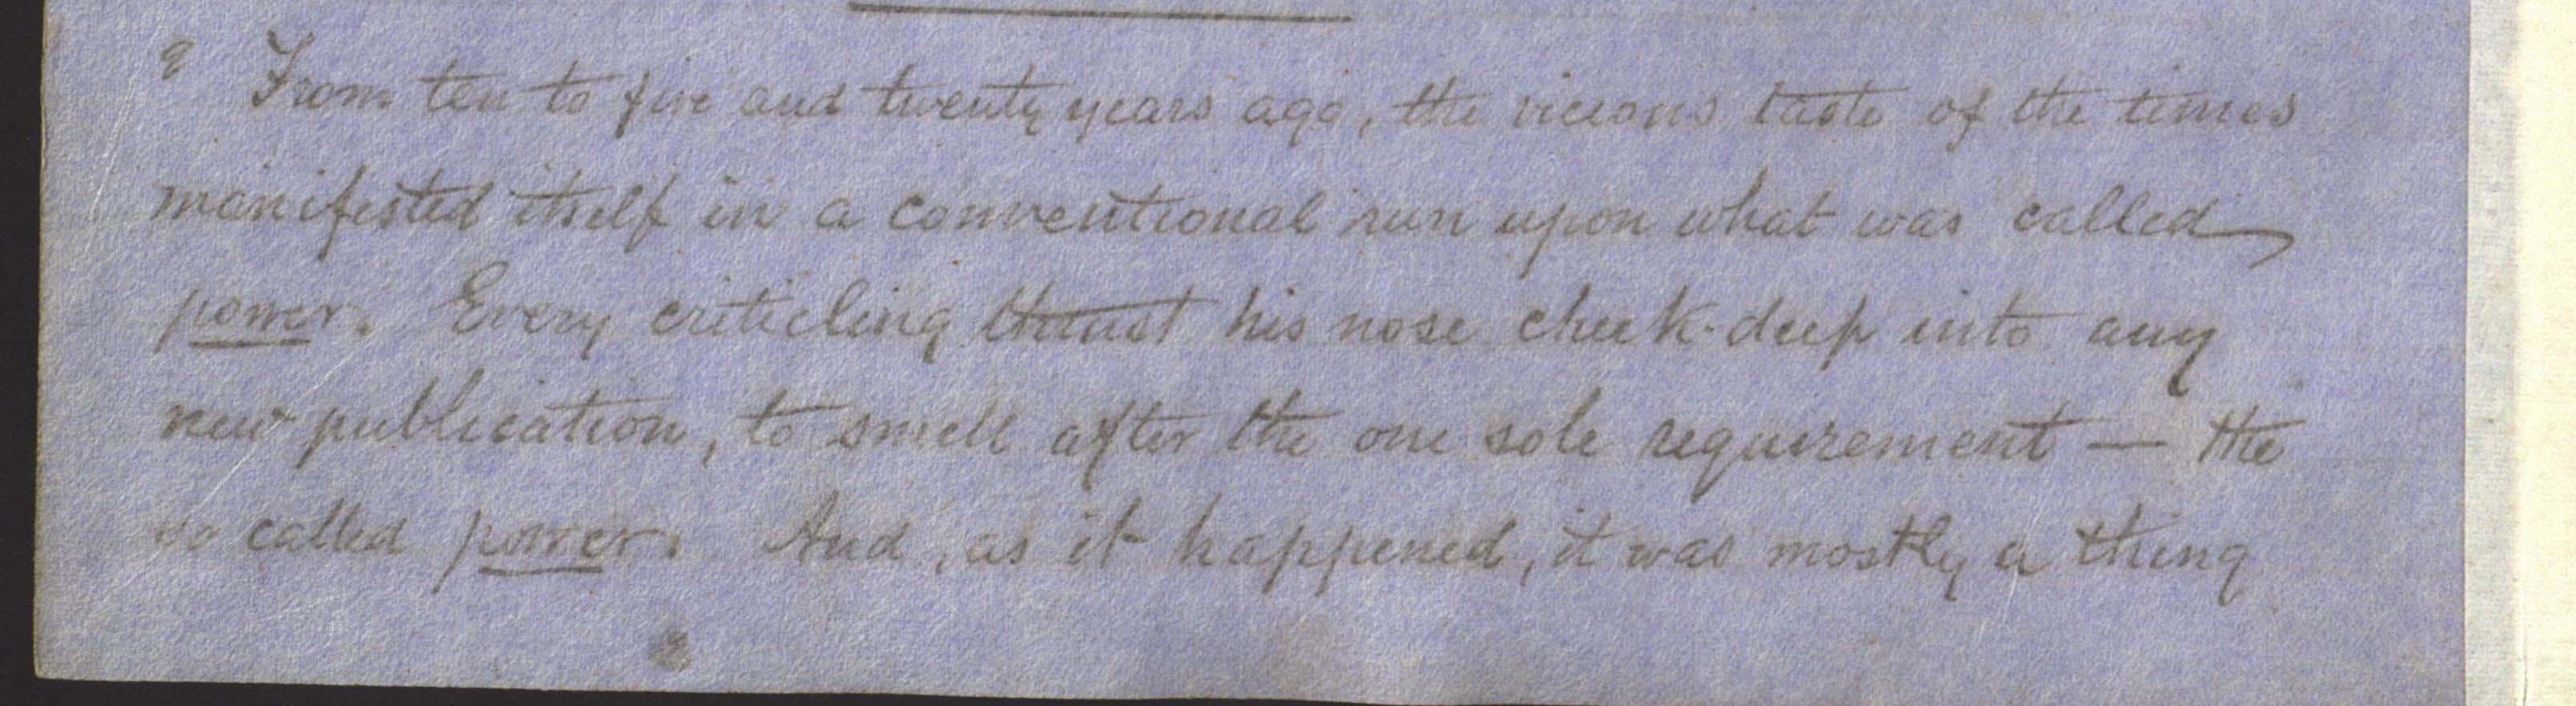 9 From ten to five and twenty years ago, the vicious taste of the times
manifested itself in a conventional run upon what was called
power. Every criticling thrust his nose cheek-deep into any
new publication, to smell after the one sole requirement — the
so called power. And, as it happened, it was mostly a thing